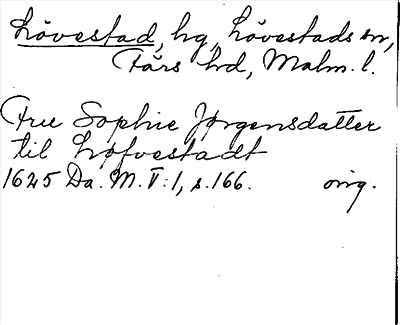 Lövestad, hg, Lövestads sn,
Färs hd, Malm. l.
Fru Sophie Jørgensdatter
til Løfvestadt
1625 Da. M. V:1, s. 166. orig.